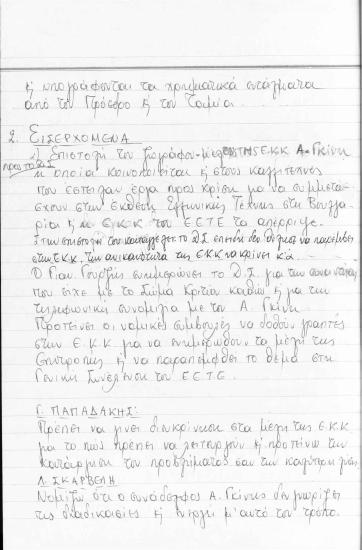 ή υπογράφονται τα χρηματικά εντάλματα
από τον Πρόεδρο ή τον Ταμία.
2. ΕΙΣΕΡΧΟΜΕΝΑ
1) Επιστολή του ζωγράφου-μέλος ΤΗΣ ΕΚΚ Α. Γκίνη
προς το Δ.Σ
η οποία κοινοποιείται ή στους καλλιτέχνες
που έστειλαν έργα προς κρίση για να συμμετά-
σχουν στην Έκθεση Ελληνικής Τέχνης στη Βουλγα-
ρία ή η Ε.Κ.Κ του ΕΕΤΕ τα απέρριψε.
Στην επιστολή του καταγγέλει το Δ.Σ επειδή δεν θέλησε να παρέμβει
στην Ε.κ.κ. την ανικανότητα της ΕΚΚ να κρίνει κ.ά
Ο Γιαν. Γουρζής ενημερώνει το Δ.Σ. για την συνάντηση
που είχε με το Σώμα Κριτών καθώς ή για την
τηλεφωνική συνομιλία με τον Α. Γκίνη
Προτείνει οι νομικές συμβουλές να δοθούν γραπτές
στην Ε.κ.κ. για να ενημερωθούν τα μέλη της
Επιτροπής ή να παραπεμφθεί το θέμα στη
Γενική Συνέλευση του ΕΕΤΕ.
Γ. ΠΑΠΑΔΑΚΗΣ:
Πρέπει να γίνει διευκρίνηση στα μέλη της Ε.Κ.Κ
για το πως πρέπει να λειτουργούν ή προτείνω την
κατάργηση του προβλήματος σαν την καλύτερη λύση
Λ. ΣΚΑΡΒΕΛΗ
Νομίζω ότι ο συνάδελφος Α. Γκίνης δεν γνωρίζει
τις διαδικασίες ή ενεργεί μ' αυτό τον τρόπο.